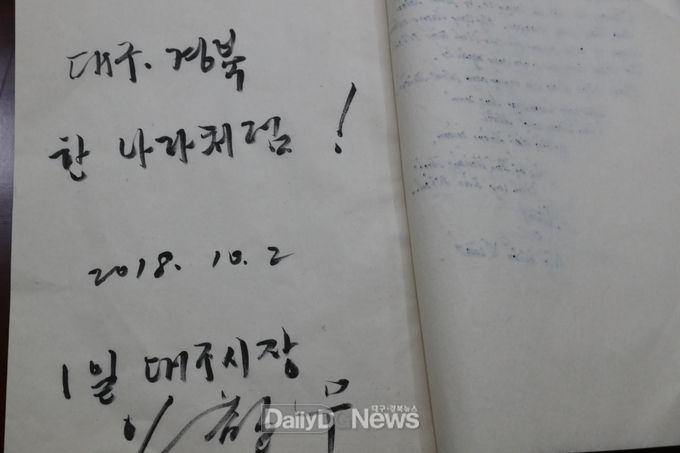 대구. 경북
한 나라처럼 !
2018. 10. 2
1일 대구시장
이철우
대구·경북뉴스
DailyDGNews